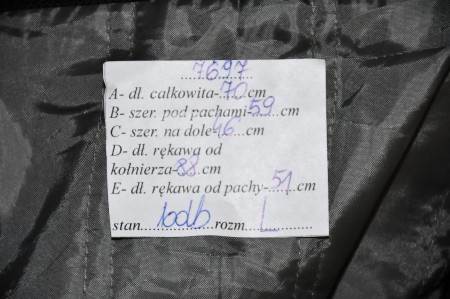 7697
A- dł. całkowita-70cm
B- szer. pod pachami-59cm
C- szer. na dole-46cm
D- dł. rękawa od
kołnierza-88cm
E- dł. rękawa od pachy-51cm
stan bdb rozm. L